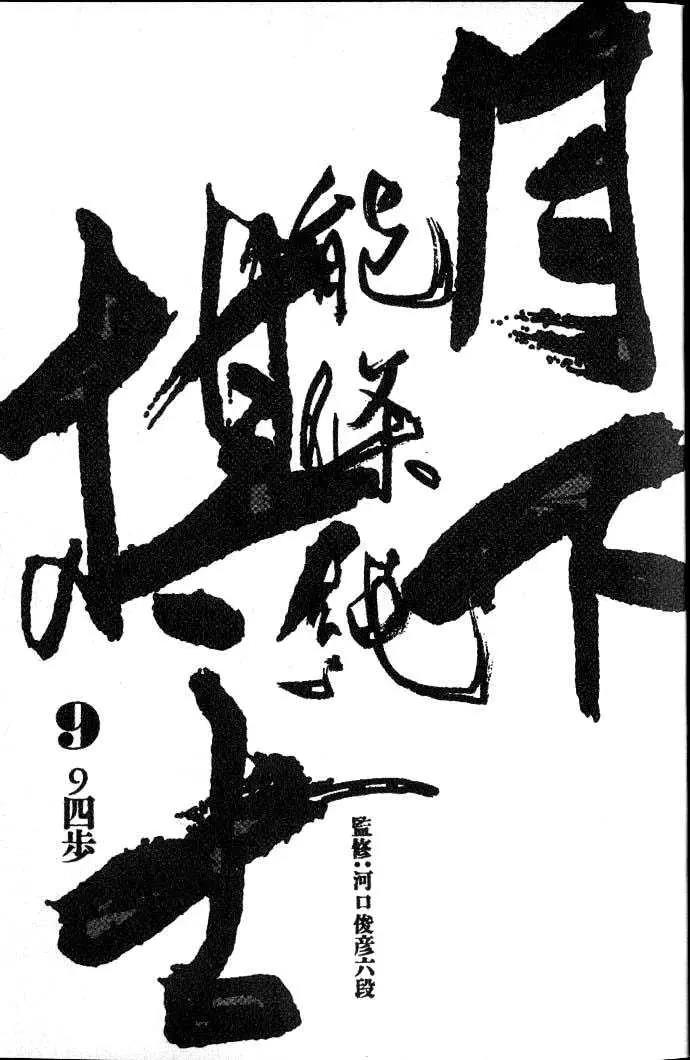 月下
棋士
能條純一
監修:河口俊彦六段
9
9四歩